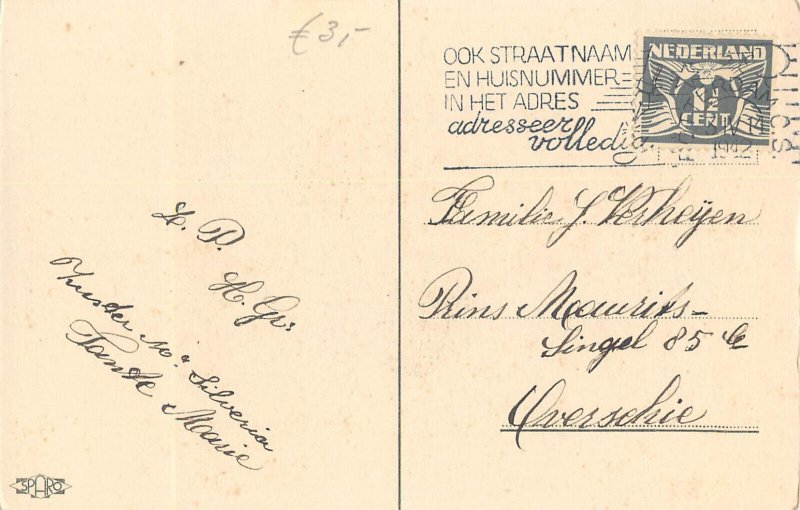 €3,-
OOK STRAATNAAM
EN HUISNUMMER
IN HET ADRES
adresseer
volledig.
NEDERLAND
½
CENT
IV
1942
Z. P.
H. Gr.
Zuster Ma. Silveria
Tante Marie
Familie J. Verheÿen
Prins Maurits-
Singel 85 c
Overschie
SPARO